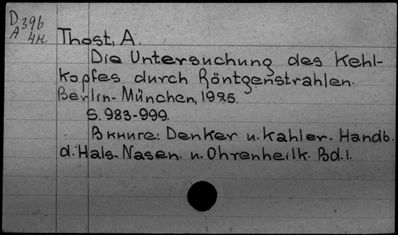 D 396
A 4н
Thost, A.
Die Untersuchung des Kehl-
kopfes durch Röntgenstrahlen.
Berlin-München, 1925.
S. 983-999.
В книге: Denker u. Kahler. Handb.
d. Hals-Nasen- u. Ohrenheilk. Bd. 1.